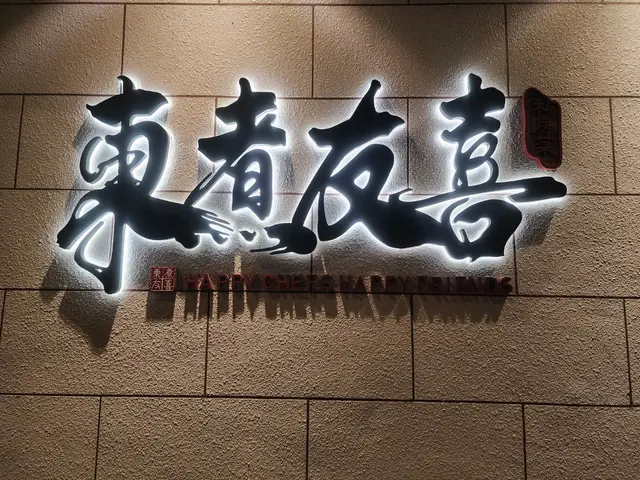 東煮友喜
東煮
友喜
HAPPY CHEFS HAPPY FRIENDS